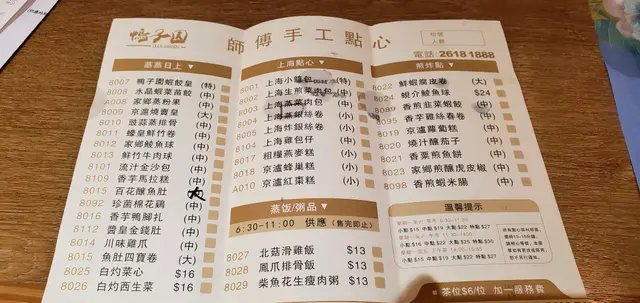 鴨子園
師傅手工點心
檯號
人數
電話:26181888
蒸蒸日上▼
8007 鴨子園蝦餃皇 (特)
8008 水晶蝦菜苗餃 (中)
A008 家鄉蒸粉果 (中)
8009 京滬燒賣皇 (大)
8010 豉蒜蒸排骨 (中)
8011 蠔皇鮮竹卷 (中)
8012 家鄉鯪魚球 (中)
8013 鮮竹牛肉球 (中)
8101 流汁金沙包 (中)
8109 香芋馬拉糕 (小)
8015 百花釀魚肚
8092 珍菌棉花鷄 (中)
8016 香芋鴨腳扎 (中)
8112 醬皇金錢肚 (中)
8014 川味雞爪 (中)
8015 魚肚四寶卷 (大)
8025 白灼菜心 $16
8026 白灼西生菜 $16
上海點心▼
8001 上海小籠包 (特)
上海生煎菜肉包 (中)
上海蒸菜肉包 (中)
上海蒸銀絲卷 (小)
上海炸銀絲卷 (小)
上海雞包仔 (中)
8017 粗糧燕麥糕 (小)
8018 京滬蜂巢糕 (小)
A010 京滬紅棗糕 (小)
蒸飯/粥品▼
6:30-11:00 供應 (售完即止)
8027 北菇滑雞飯 $13
8028 鳳爪排骨飯 $13
8029 柴魚花生瘦肉粥 $13
煎炸點▼
8022 鮮蝦腐皮卷 (大)
8024 銀介鯪魚球 $24
香煎韭菜蝦餃 (中)
8095 香芋雞絲春卷 (中)
8019 京滬蘿蔔糕 (中)
8020 燒汁釀茄子 (中)
8021 香粟煎魚餅 (中)
8023 家鄉煎釀虎皮椒 (中)
8098 香煎蝦米腸 (中)
溫馨提示
茶位$6/位 加一服務費